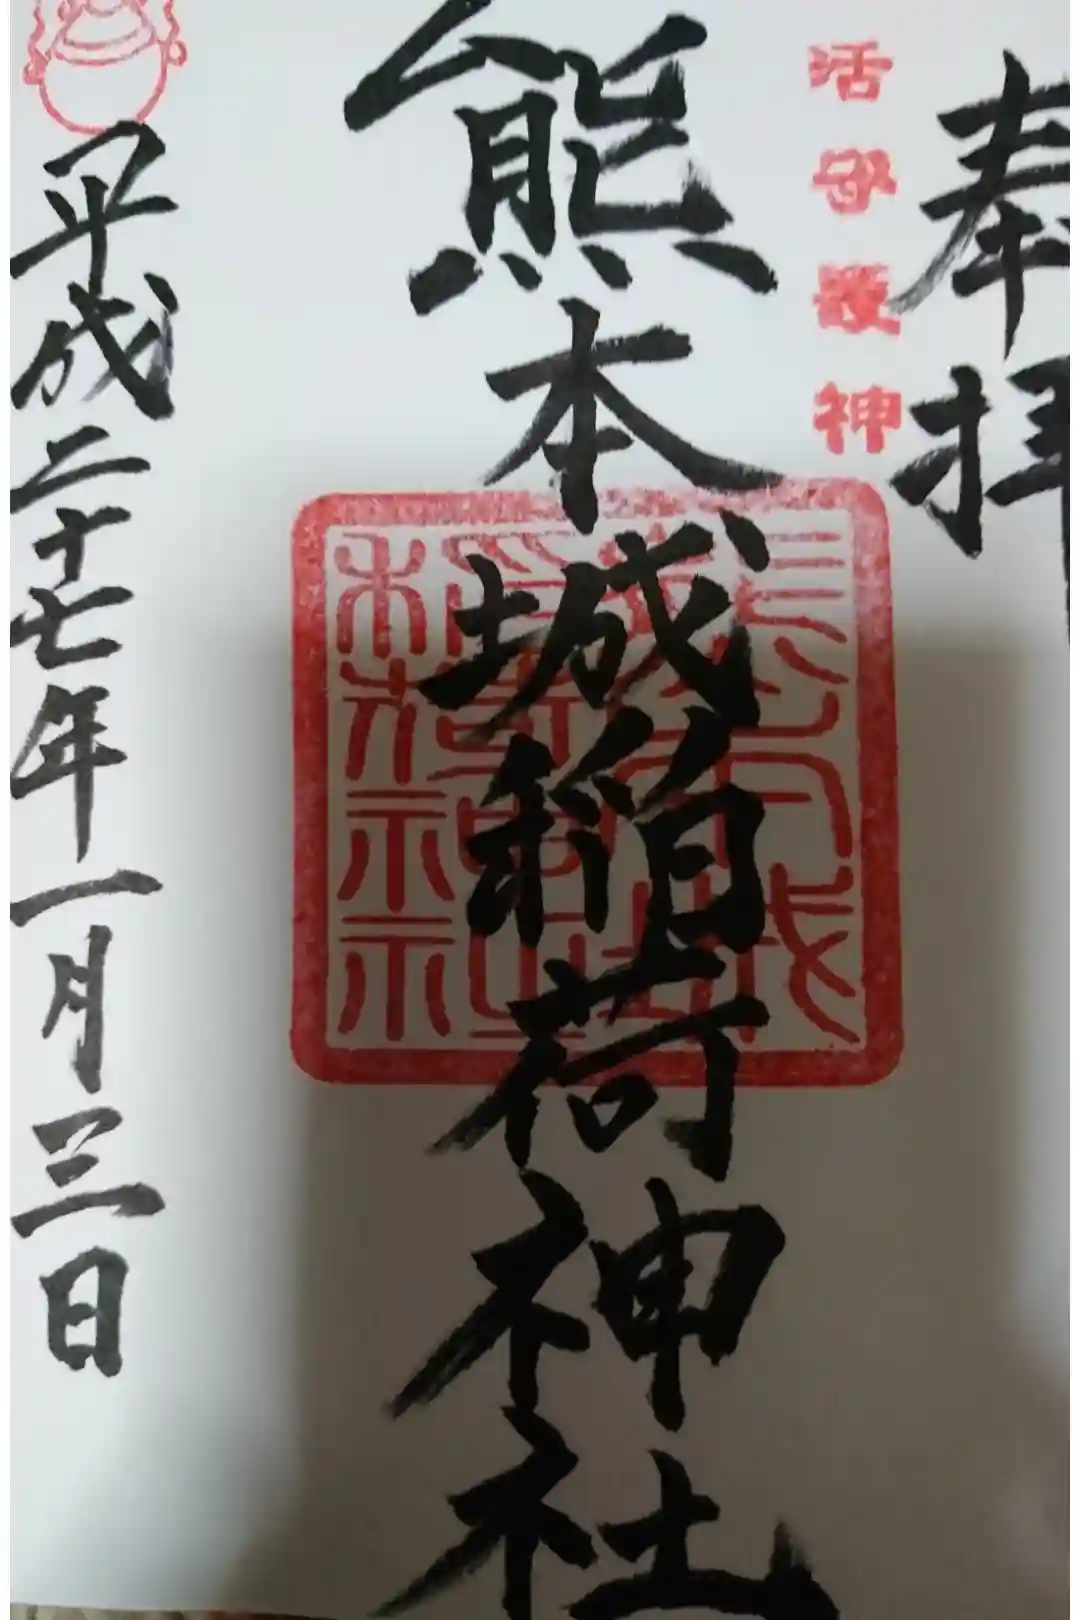 奉拝
活守護神
熊本城稲荷神社
平成二十七年一月三日